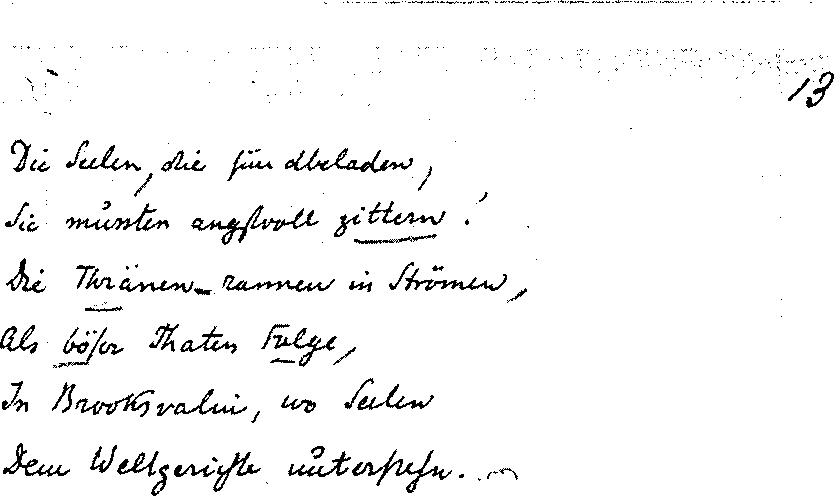 13
Die Seelen, die sündbeladen,
Sie mußten angstvoll zittern!
Die Thränen rannen in Strömen,
Als böser Thaten Folge,
In Brooksvalin, wo Seelen
Dem Weltgerichte unterstehn.